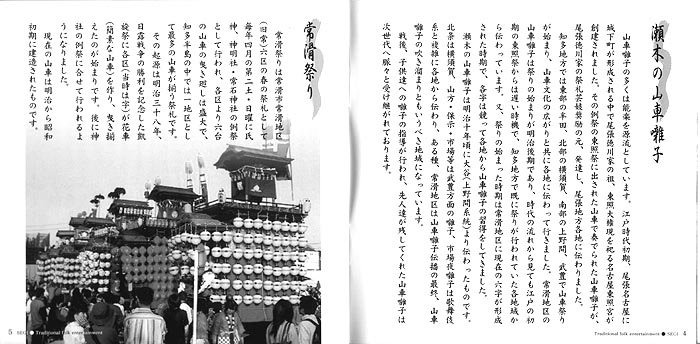 瀬木の山車囃子
山車囃子の多くは能楽を源流としています。江戸時代初期、尾張名古屋に
城下町が形成される中で尾張徳川家の祖、東照大権現を祀る名古屋東照宮が
創建されました。その例祭の東照祭に出された山車で奏でられた山車囃子が、
尾張徳川家の祭礼芸能奨励の元、発達し、尾張地方各地に伝わりました。
知多地方では東部の半田、北部の横須賀、南部の上野間、武豊で山車祭り
が始まり、山車文化の広がりと共に各地に伝わって行きました。常滑地区の
山車囃子は祭りの始まりが明治後期であり、時代の流れから見ても江戸の初
期の東照祭からは遅い時機で、知多地方で既に祭りが行われていた各地域か
ら伝わっています。又、祭りの始まった時期は常滑地区に現在の六字が形成
された時期で、各字は競って各地から山車囃子の習得をしてきました。
瀬木の山車囃子は明治十年頃に大谷(上野間系統)より伝わったものです。
北条は横須賀、山方・保示・市場等は武豊方面の囃子、市場夜囃子は歌舞伎
系と複雑に各地から伝わり、ある種、常滑地区は山車囃子伝播の最終、山車
囃子の吹き溜まりともいうべき地域になっています。
戦後、子供達への囃子の指導が行われ、先人達が残してくれた山車囃子は
次世代へ脈々と受け継がれております。
Traditional folk entertainment ● SEGI 4
常滑祭り
常滑祭りは常滑市常滑地区
(旧常)六区の春の祭礼として
毎年四月の第二土・日曜に氏
神、神明社・常石神社の例祭
として行われ、各区より六台
の山車の曳き廻しは盛大で、
知多半島の中では一地区とし
て最多の山車が揃う祭礼です。
その起源は明治三十八年、
日露戦争の勝利を記念した凱
旋祭に各区(当時は字)が花車
(簡素な山車)を作り、曳き揃
えたのが始まりです。後に神
社の例祭に合せて行われるよ
うになりました。
現在の山車は明治から昭和
初期に建造されたものです。
5 SEGI ● Traditional folk entertainment